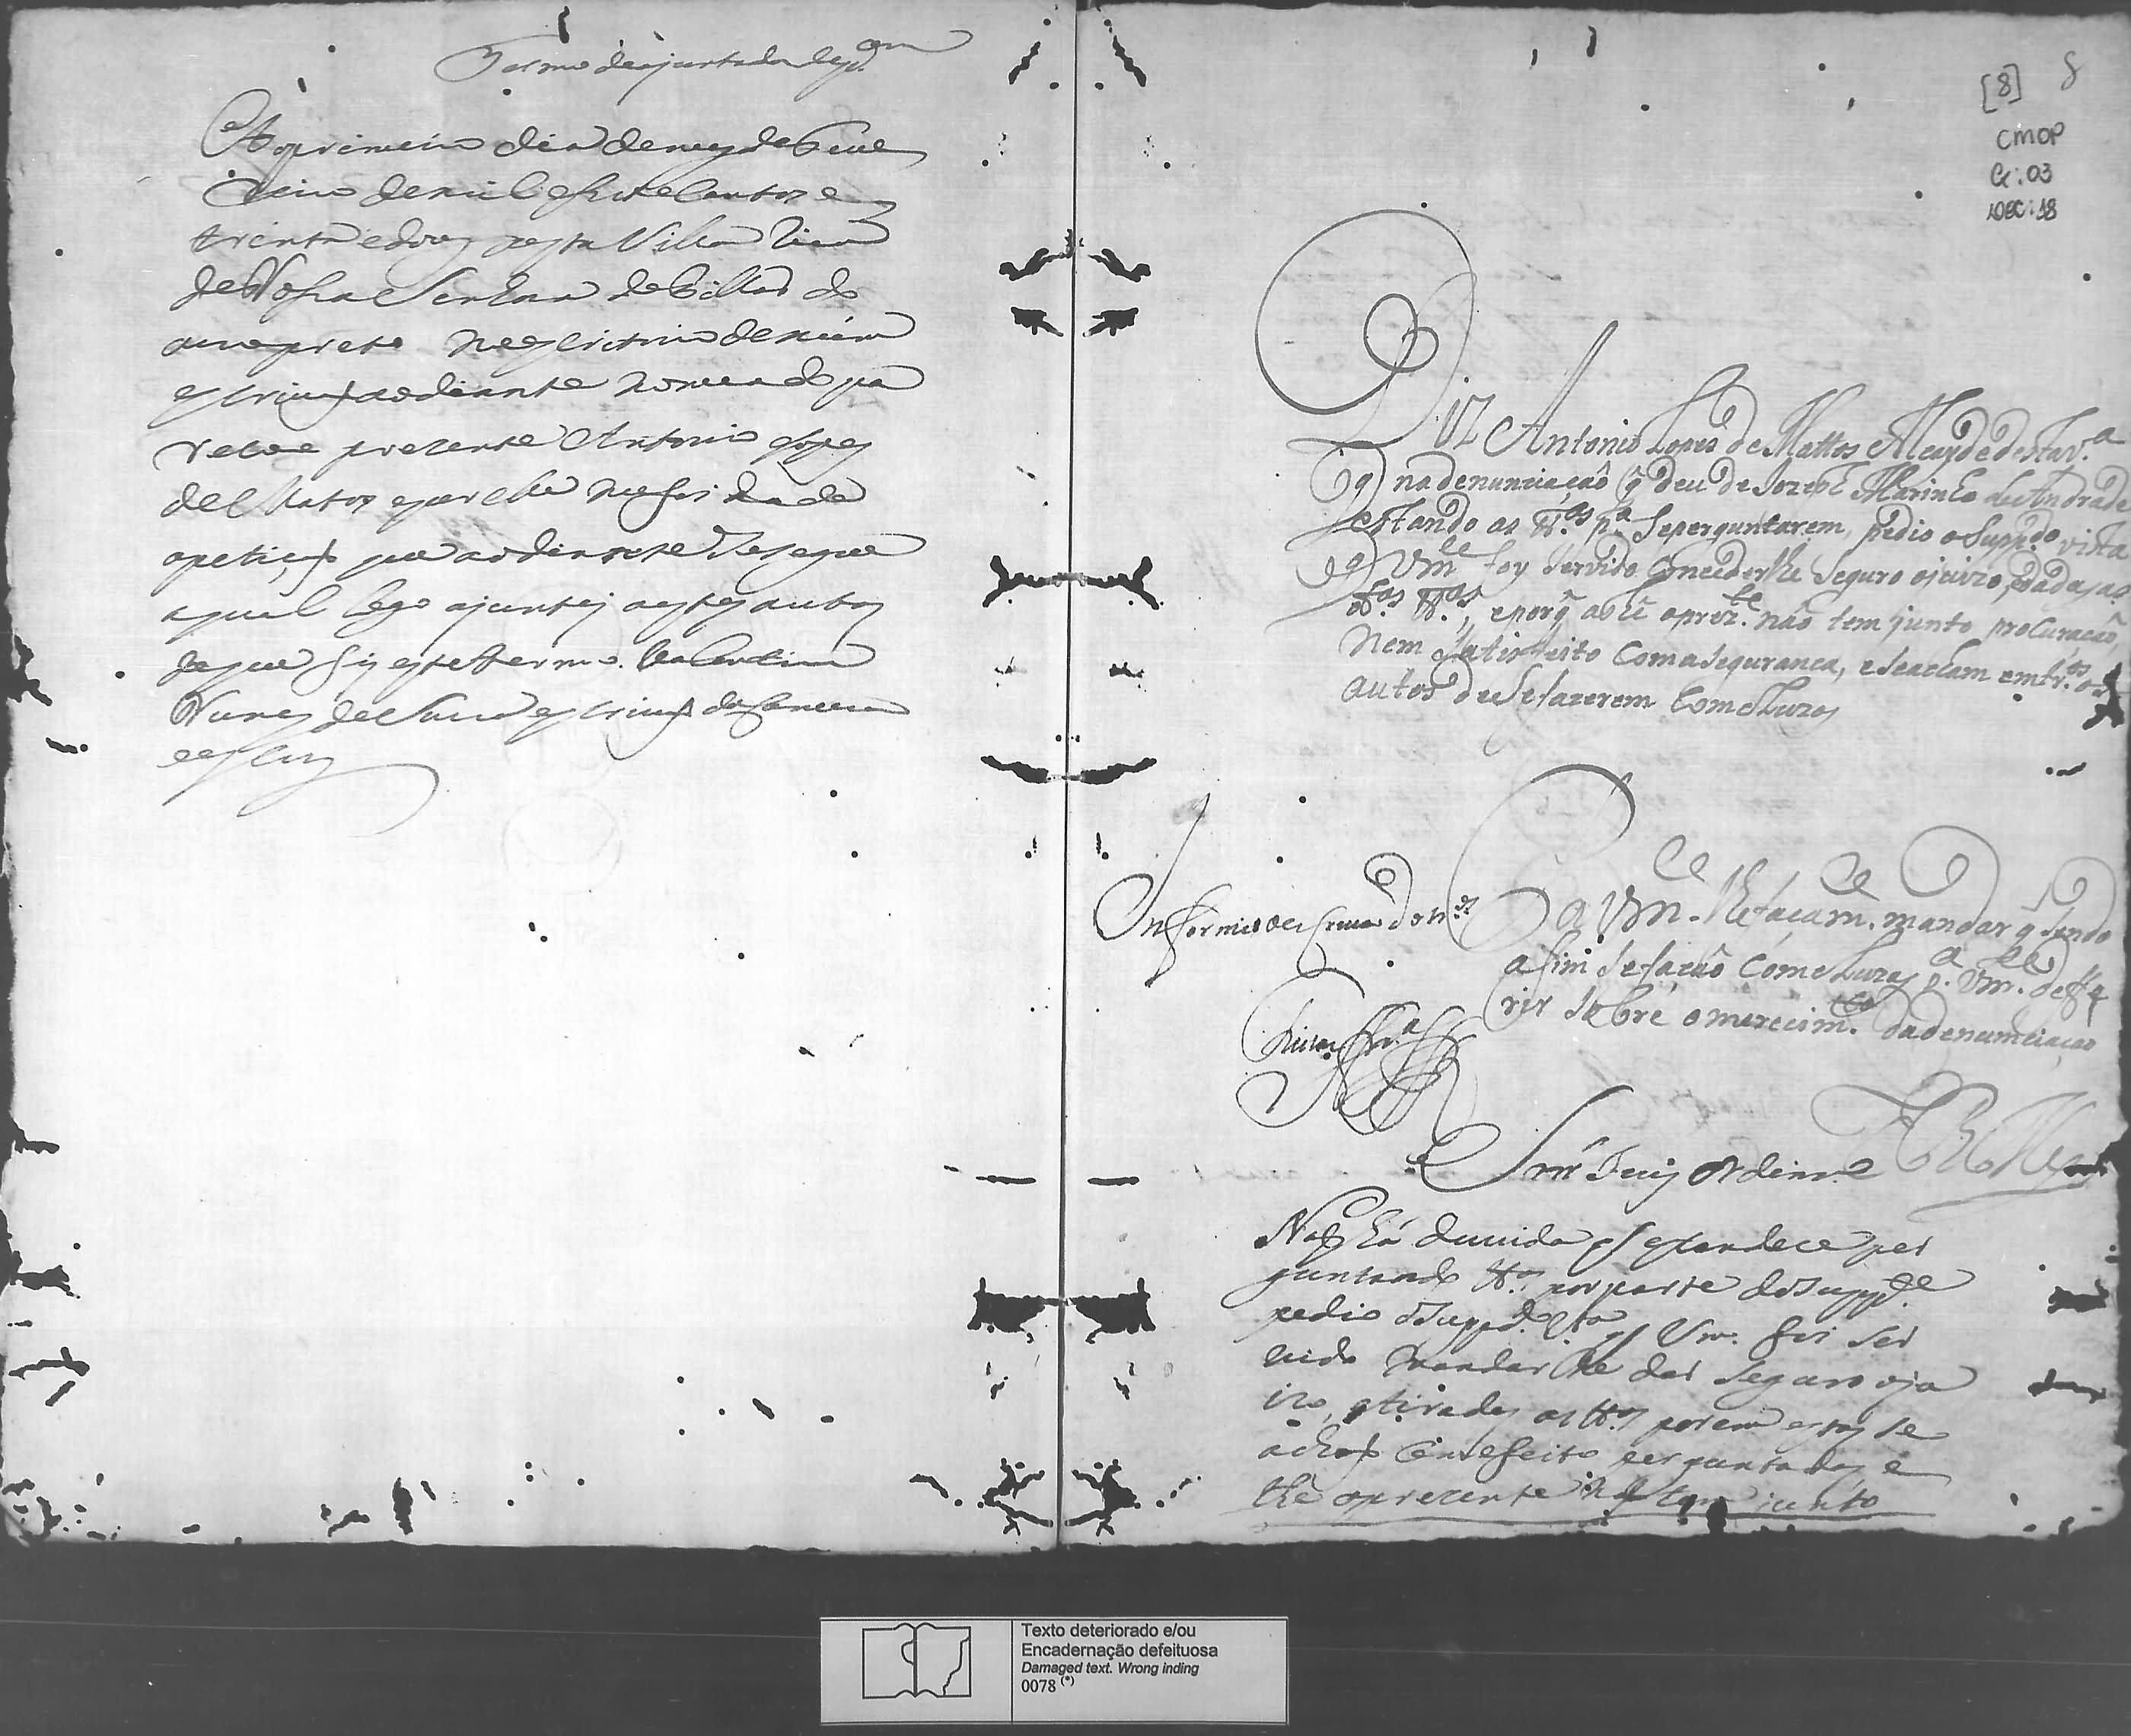 Termo de ajuntada de p.am
Ao primeiro dia do mes de Feue
reiro de mil e sete Centos e
trinta e dous nesta Villa Rica
de Nossa Senhora do Pillar do
ouro preto no escritorio de mim
escrivaõ ao diante nomeado pa
receo prezente Antonio Lopes
de Mattos e por elle me foi dada
a petiçaõ que ao diente se segue
a qual logo ajuntej a estes autos
de que fis este termo. Valentim
Nunes de Souza escrivaõ da Camera
escreuy
[8] 8
CMOP
Cx: 03
DOC: 18
Diz Antonio Lopes de Mattos Alcayde desta V.a
q na denunciaçaõ q̃ deu de Jozeph Marinho de Andrade
estando as tt.as p.a se perguntarem, pedio o Supp.do vista
q Vm.ce foy servido Conceder lhe seguro o juizo, e dadas as
d.as tt.as, e porq̃ athe o prez.te não tem junto procuraçaõ,
nem satisfeito Com a segurança, e se acham em tr.os os
autos de se fazerem Comcluzos
Informe o escrivaõ do nes.
P a Vm.ce lhe faça m.ce mandar q̃ sendo
assim se façaõ Comcluzos p.a Vm.ce deffe
rir sobre o merecim.to da denunciaçaõ
E R M.ce
Snr Juis Ordinr.o
Naõ há duuida q̃ estandoce per
guntando tt.as por parte do Supp.te
pedio o Supp.do v.ta q̃ Vm. foi ser
uido mandar lhe dar seguro o ju
izo, e tiradas as tt.as porem estas se
achaõ Com efeito perguntadas, e
thé o prezente naõ tem junto
Texto deteriorado e/ou
Encadernação defeituosa
Damaged text. Wrong inding
0078 (*)